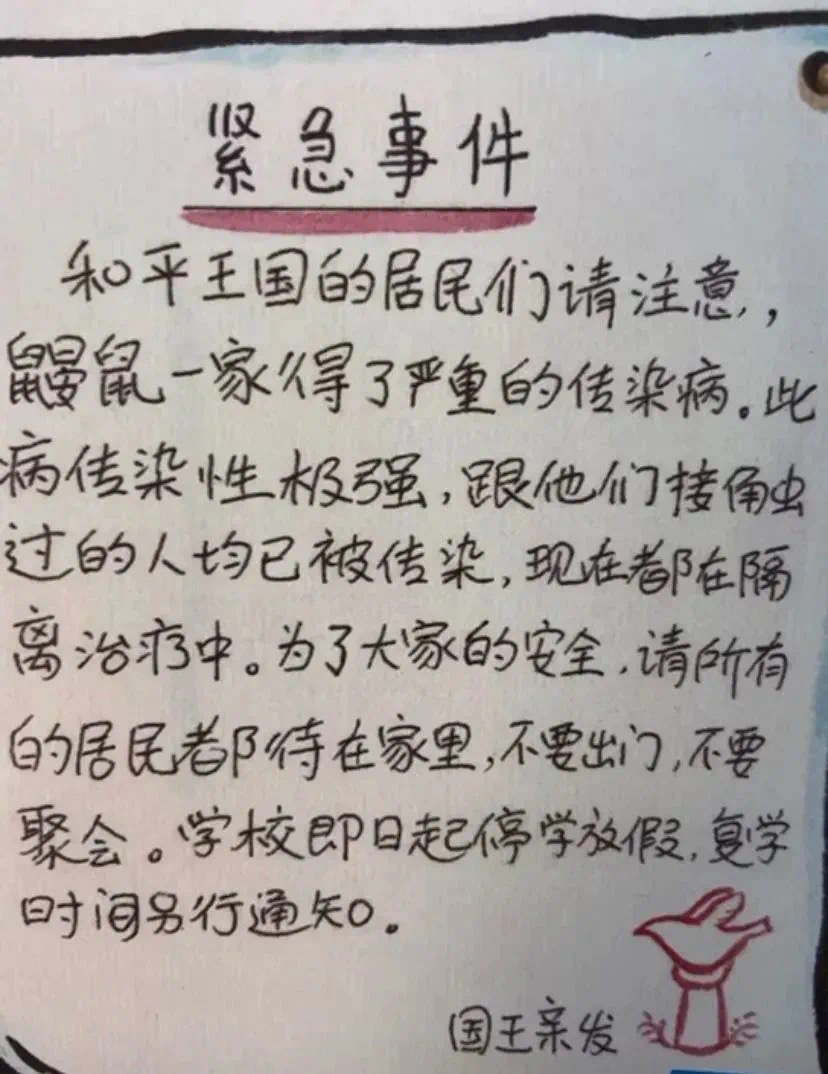 紧急事件
和平王国的居民们请注意，
鼹鼠一家得了严重的传染病。此
病传染性极强，跟他们接触
过的人均已被传染，现在都在隔
离治疗中。为了大家的安全，请所有
的居民都待在家里，不要出门，不要
聚会。学校即日起停学放假，复学
时间另行通知。
国王亲发